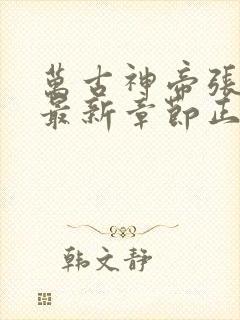 萬古神帝張
最新章節正
韩文静